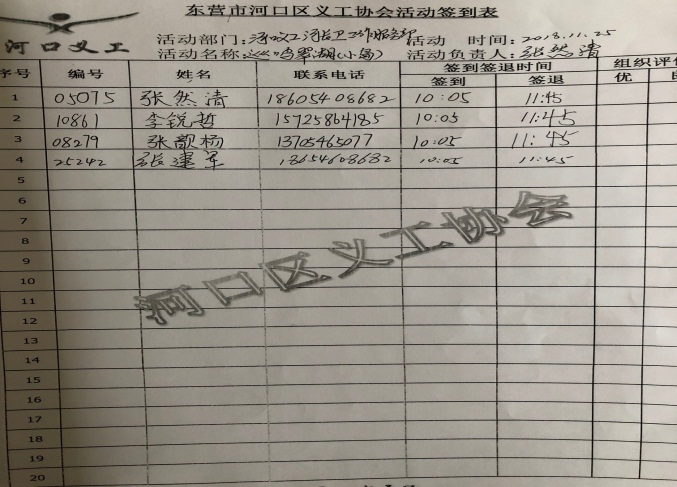 东营市河口区义工协会活动签到表
河口义工
活动部门: 活动 时间: 2018.11.25
活动名称: 鸣翠湖(小岛) 活动负责人: 张然清
序号 编号 姓名 联系电话 签到签退时间 组织评
签到 签退 优
1 05075 张然清 18605408682 10:05 11:45
2 10861 李锐哲 15725864185 10:05 11:45
3 08279 张歆杨 13705465077 10:05 11:45
4 25242 张建军 13654608632 10:05 11:45
5
6
7
8
9
10
11
12
13
14
15
16
17
18
19
20
河口区义工协会